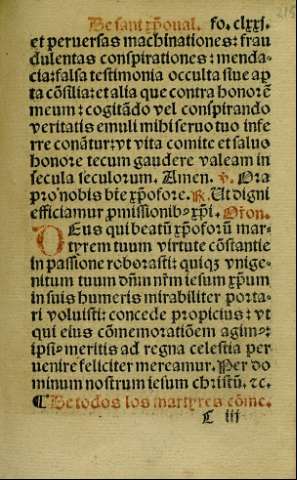 De sant xp̄oual. fo. clxxj.
et peruersas machinationes: frau
dulentas conspirationes: menda-
cia: falsa testimonia occulta siue ap
ta cōsilia: et alia que contra honorē
meum: cogitādo vel conspirando
veritatis emuli mihi seruo tuo infe
rre conātur: vt vita comite et saluo
honore tecum gaudere valeam in
secula seculorum. Amen. ℣. Ora
pro nobis bt̄e xp̄ofore. ℟. Ut digni
efficiamur ꝓmissionibꝰ xp̄i. Or̄on.
DEus qui beatū xp̄oforū mar-
tyrem tuum virtute cōstantie
in passione roborasti: quiqꝫ vnige-
nitum tuum dn̄m nr̄m iesum xp̄um
in suis humeris mirabiliter porta-
ri voluisti: concede propicius: vt
qui eius cōmemoratiōem agimꝰ:
ipsiꝰ meritis ad regna celestia per
uenire feliciter mereamur. Per do
minum nostrum iesum christū. ⁊c.
¶ De todos los martyres cōme.
C iii